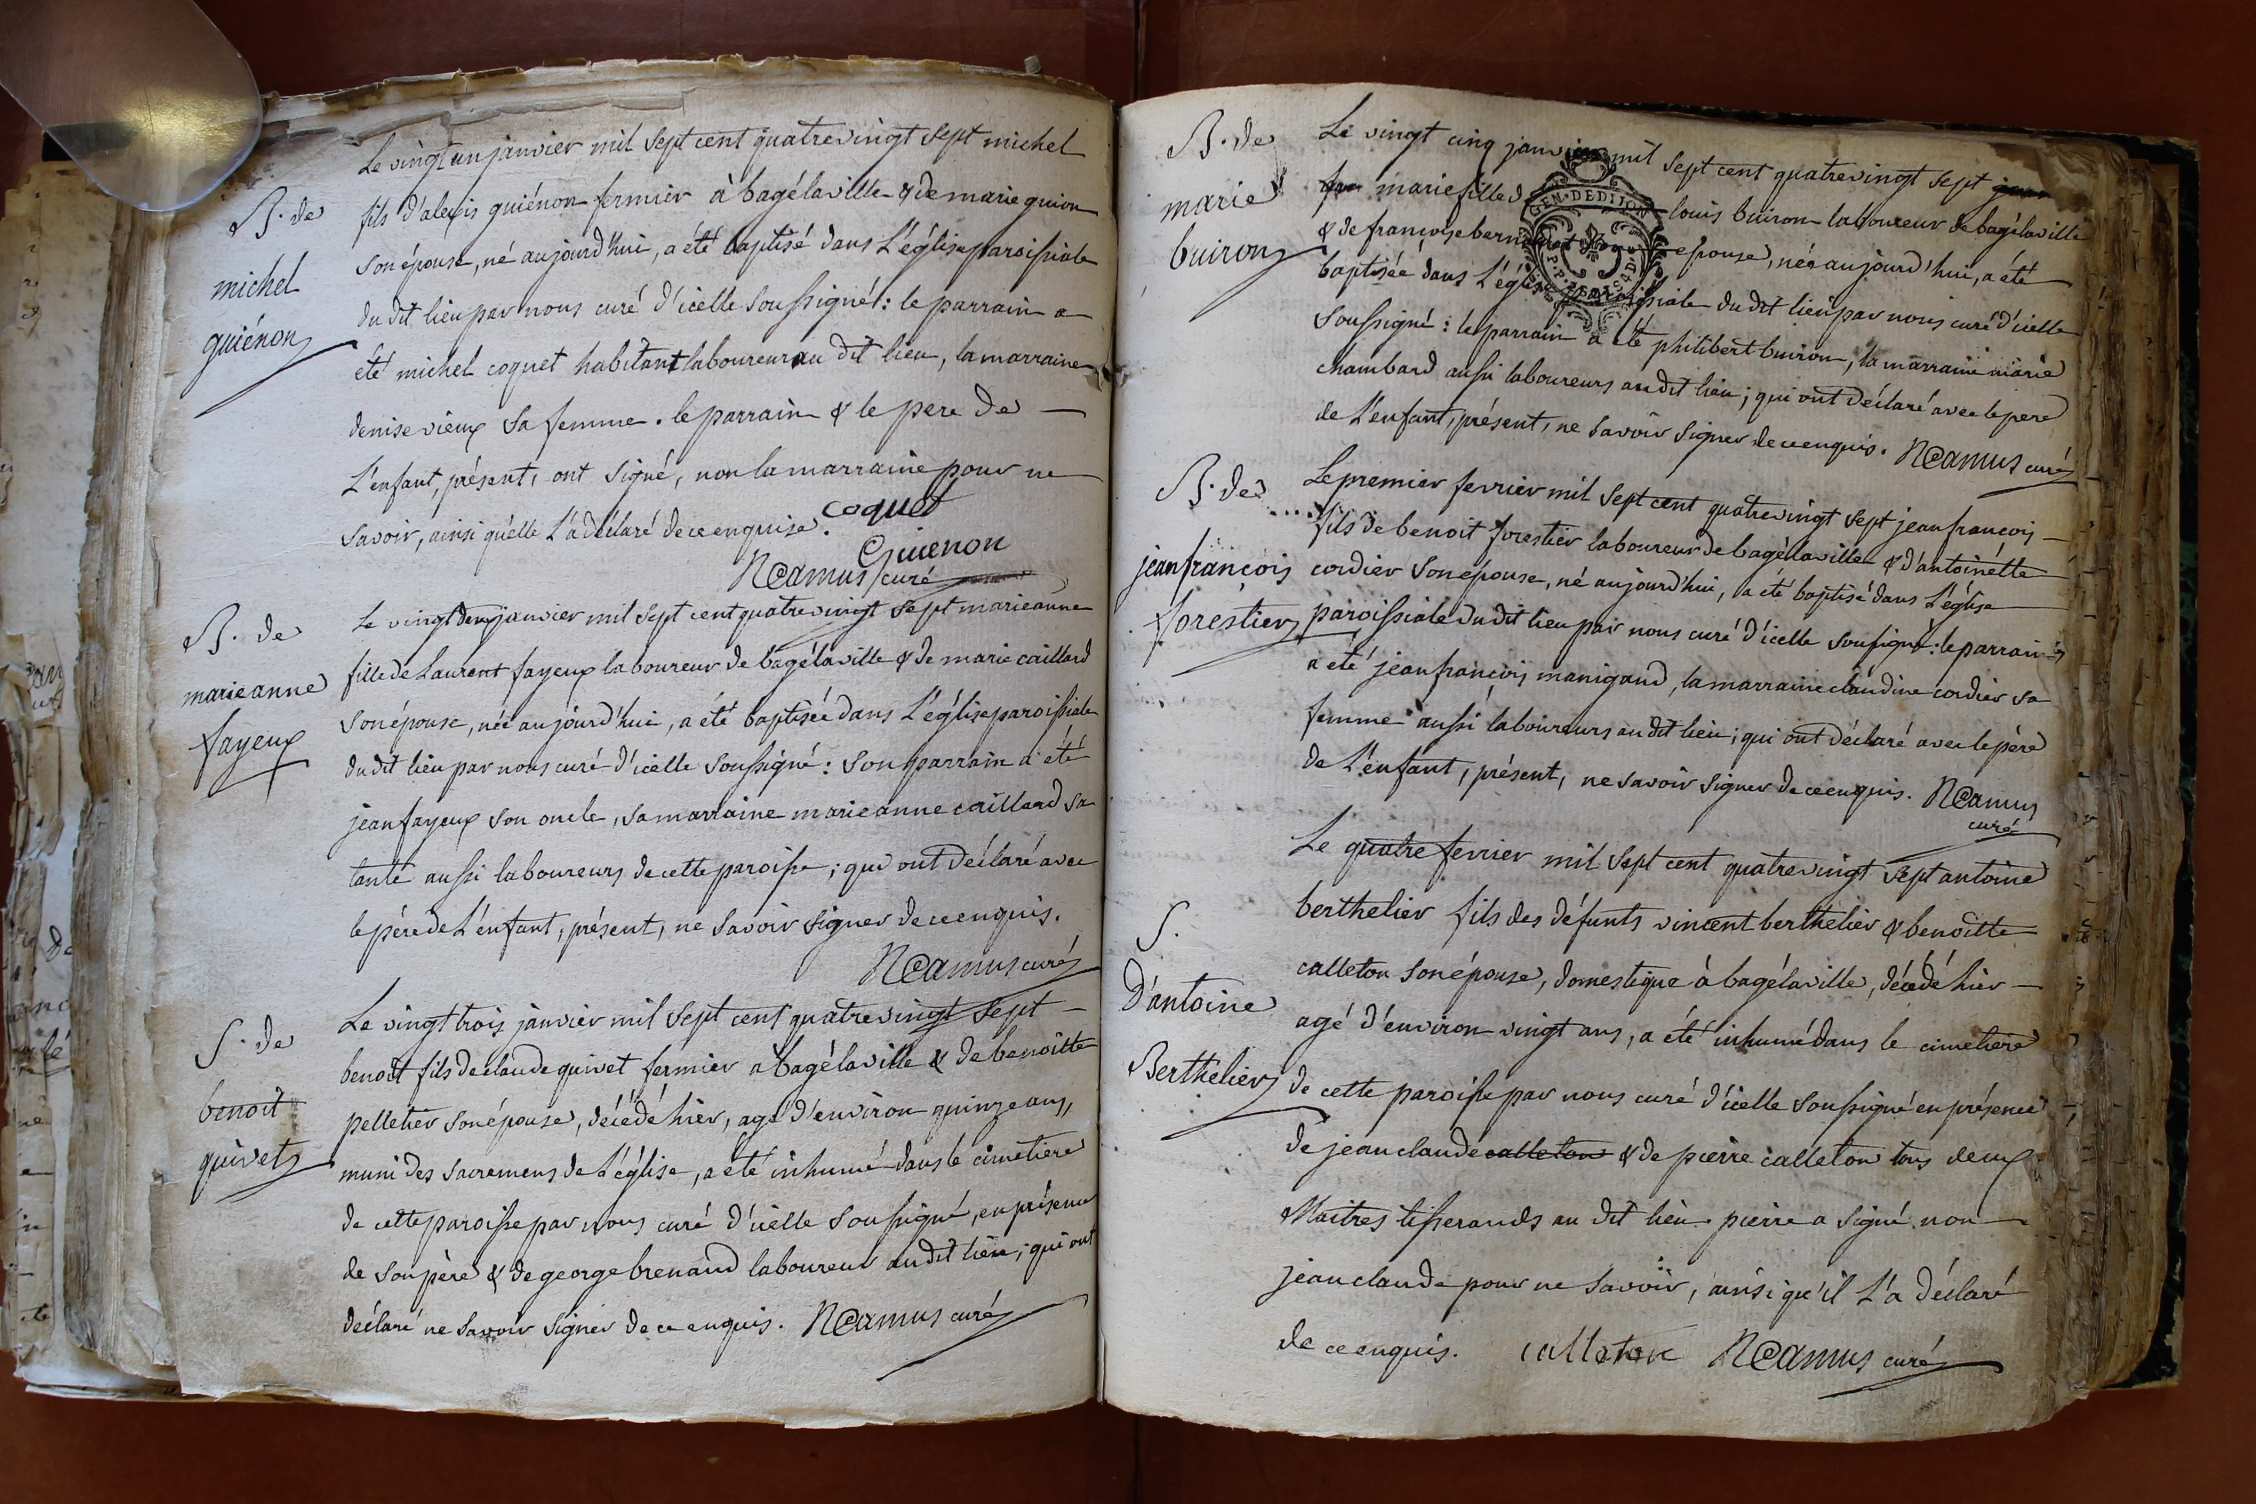 B. de
michel
guiénon
Le vingt un janvier mil sept cent quatre vingt sept michel
fils d'alexis guiénon fermier à bagé la ville & de marie guion
son épouse, né aujourd'hui, a été baptisé dans L'église paroissiale
du dit lieu par nous curé d'icelle soussigné: le parrain a
été michel coquet habitant laboureur au dit lieu, la marraine
denise vieux sa femme. le parrain & le pere de
L'enfant, présent, ont signé, non la marraine pour ne
savoir, ainsi qu'elle L'a déclaré de ce enquise. coquet
Guienon
NCamus curé
B. de
marie anne
fayeux
Le vingt deux janvier mil sept cent quatre vingt sept marie anne
fille de Laurent fayeux laboureur de bagé la ville & de marie caillard
son épouse, née aujourd'hui, a été baptisée dans L'église paroissiale
du dit lieu par nous curé d'icelle soussigné: son parrain a été
jean fayeux son oncle, sa marraine marie anne caillard sa
tante aussi laboureurs de cette paroisse; qui ont déclaré avec
le père de L'enfant, présent, ne savoir signer de ce enquis.
NCamus curé
S. de
benoit
quivet
Le vingt trois janvier mil sept cent quatre vingt sept
benoît fils de claude quivet fermier a bagé la ville & de benoîtte
pelletier son épouse, décédé hier, agé d'environ quinze ans,
muni des sacremens de L'église, a été inhumé dans le cimetiere
de cette paroisse par nous curé d'icelle soussigné, en présence
de son père & de george brenaud laboureur au dit lieu; qui ont
déclaré ne savoir signer de ce enquis. NCamus curé
B. de
marie
buiron
Le vingt cinq janvier mil sept cent quatre vingt sept
marie fille de louis buiron laboureur de bagé la ville
& de françoise epouse, née aujourd'hui, a été
baptisée dans L'église paroissiale du dit lieu par nous curé d'icelle
soussigné: le parrain a été philibert buiron, la marraine marie
chambard aussi laboureurs au dit lieu; qui ont déclaré avec le pere
de L'enfant, présent, ne savoir signer de ce enquis. NCamus curé
GEN. DE DIJON
B. de
jean françois
forestier
Le premier fevrier mil sept cent quatre vingt sept jean françois
fils de benoit forestier laboureur de bagé la ville & d'antoinétte
cordier son épouse, né aujourd'hui, a été baptisé dans L'église
paroissiale du dit lieu par nous curé d'icelle soussigné: le parrain
a été jean françois manigand, la marraine claudine cordier sa
femme aussi laboureurs au dit lieu; qui ont déclaré avec le père
de L'enfant, présent, ne savoir signer de ce enquis. NCamus
curé
S.
D'antoine
Berthelier
Le quatre fevrier mil sept cent quatre vingt sept antoine
berthelier fils des défunts vincent berthelier & benoîtte
calleton son épouse, domestique à bagé la ville, décédé hier
agé d'environ vingt ans, a été inhumé dans le cimetiere
de cette paroisse par nous curé d'icelle soussigné en présence
de jean claude calleton & de pierre calleton tous deux
Maitres tisserands au dit lieu. pierre a signé non
jean claude pour ne savoir, ainsi qu'il L'a déclaré
de ce enquis. calleton NCamus curé